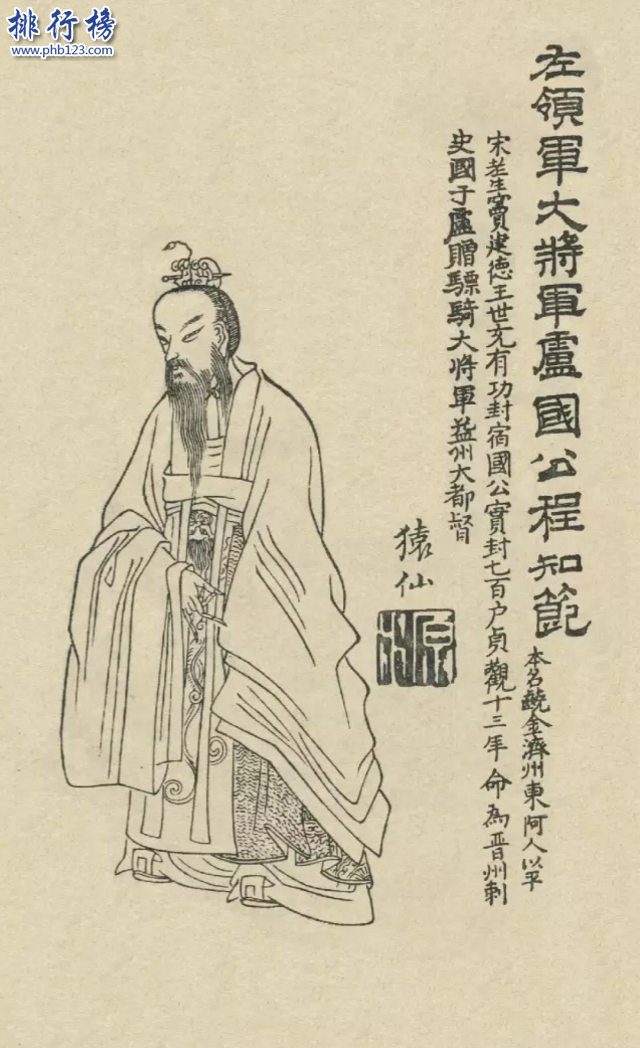 排行榜
www.phb123.com
左領軍大將軍盧國公程知節
本名䶧金濟州東阿人以平
宋老生竇建德王世充有功封宿國公實封七百户貞觀十三年命為晋州刺
史國于盧贈驃騎大將軍益州大都督
猿仙